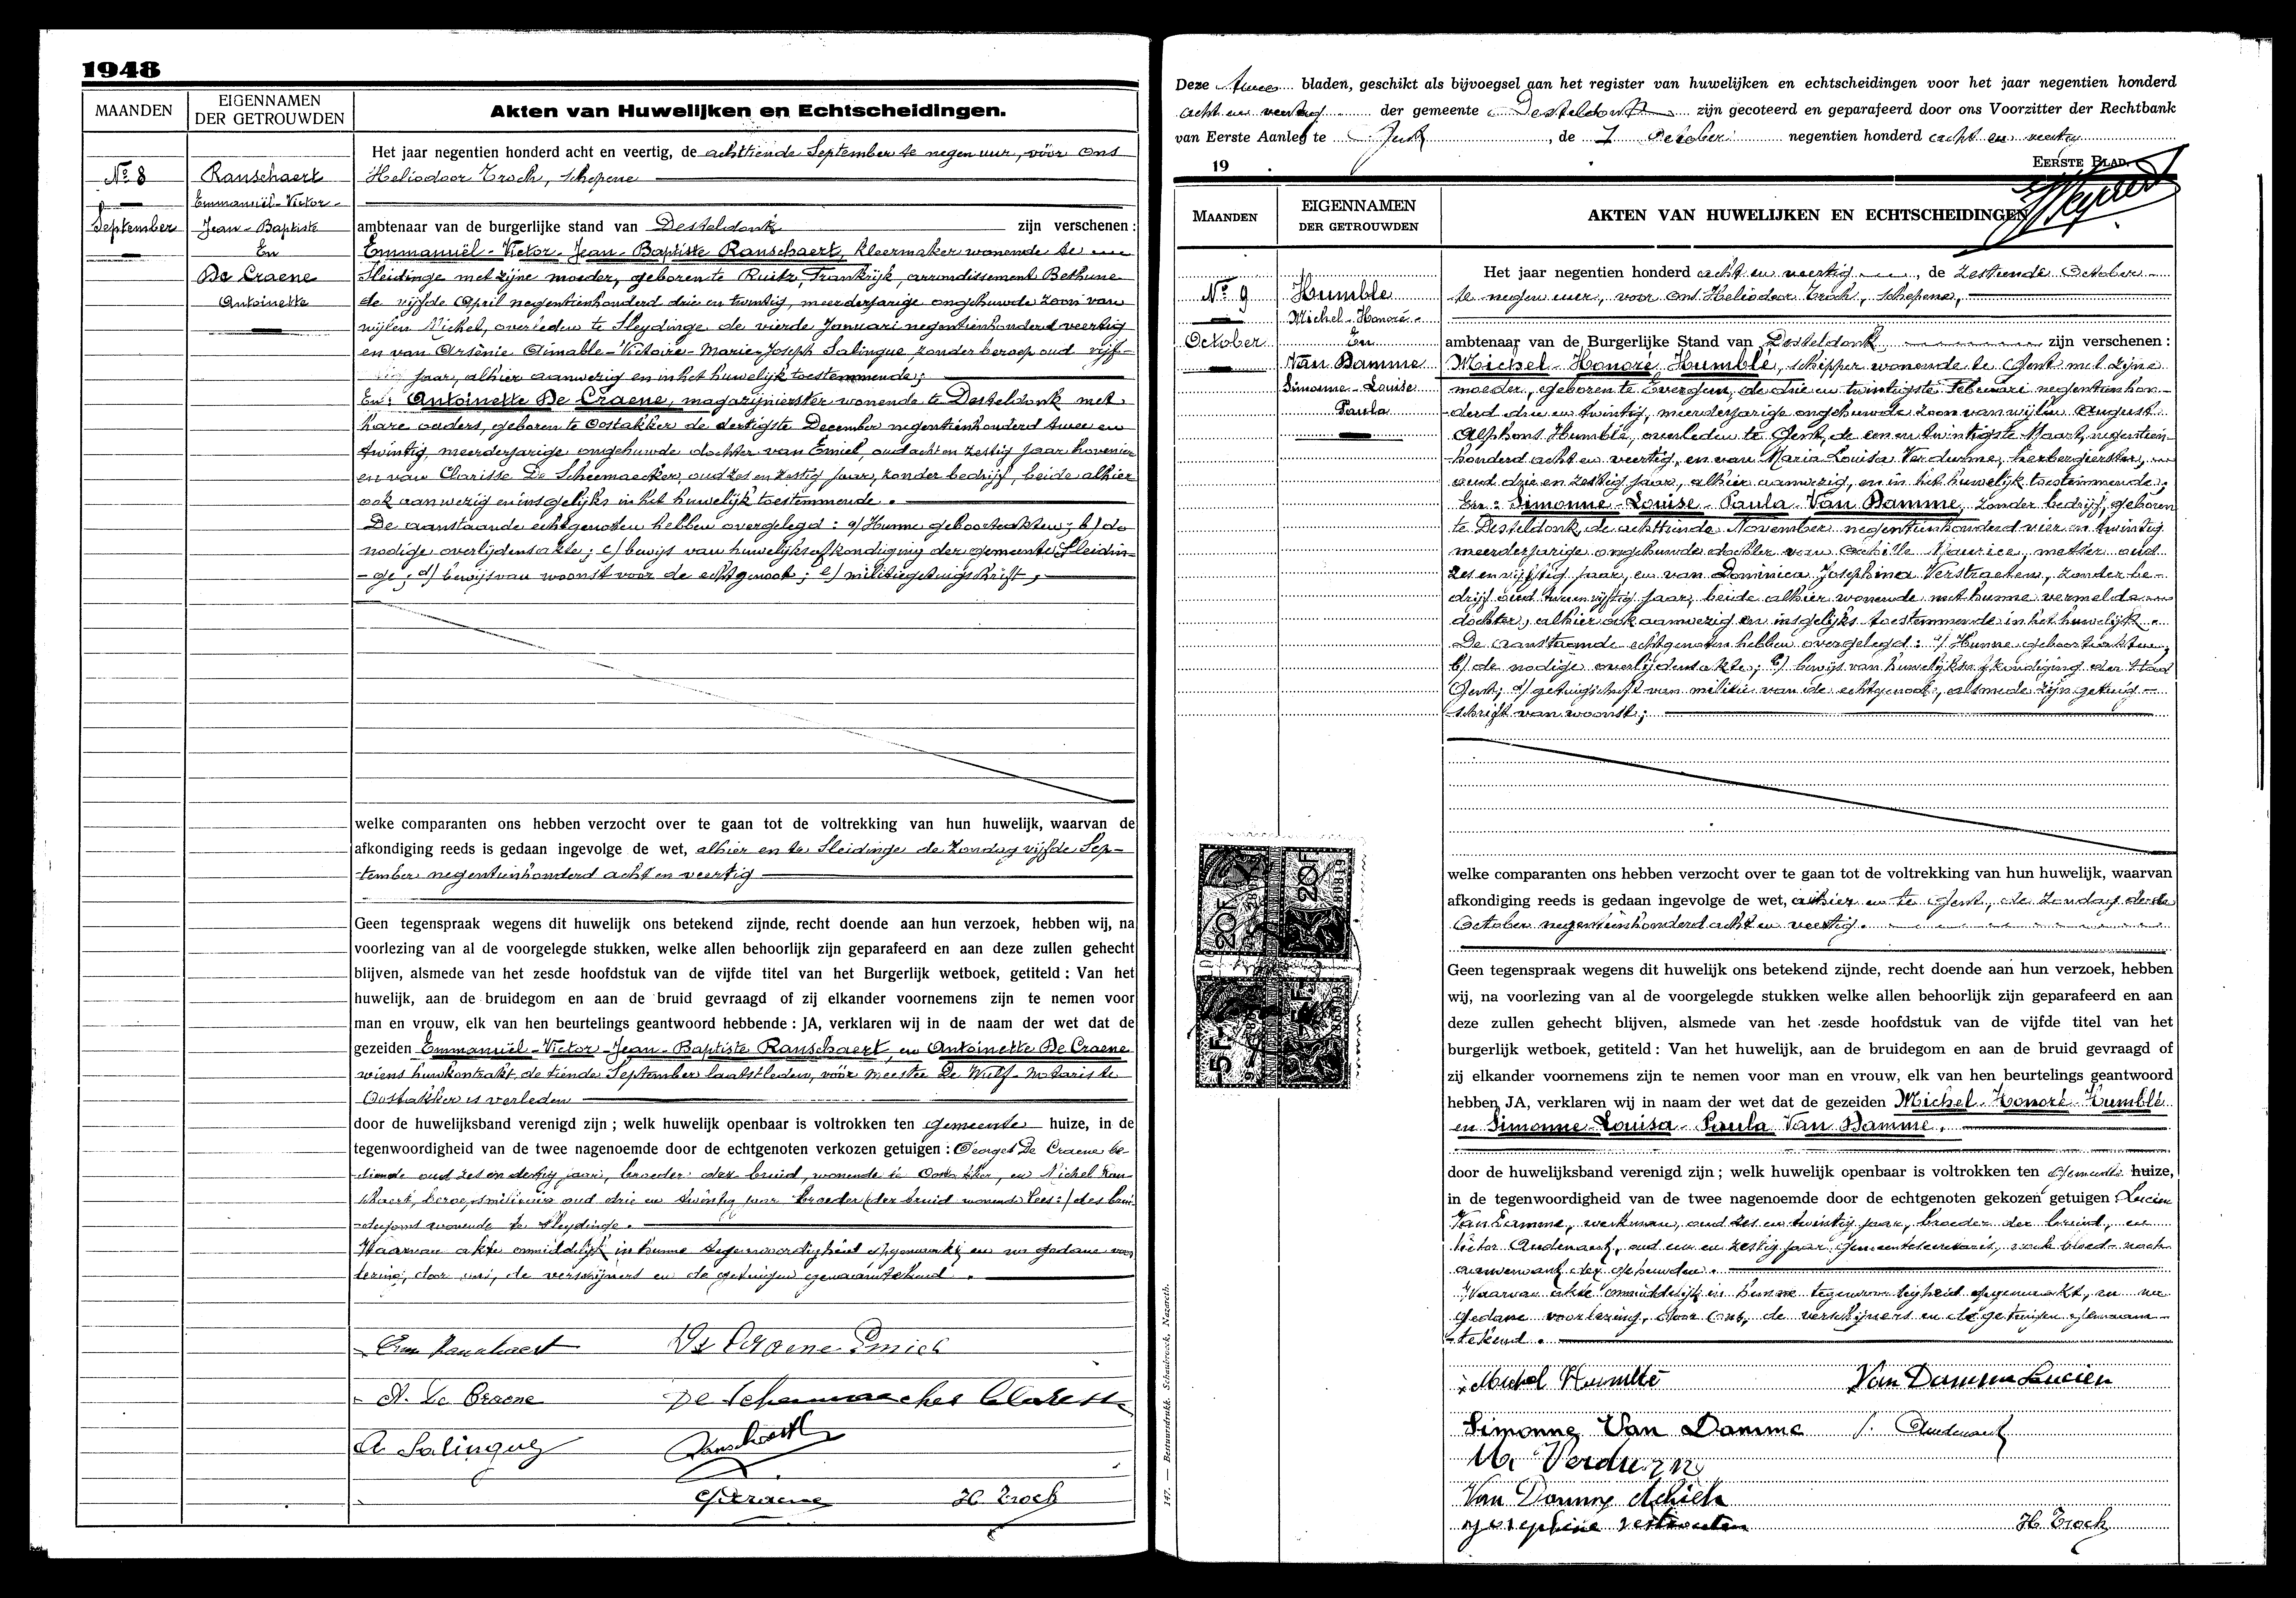 1948
MAANDEN
EIGENNAMEN
DER GETROUWDEN
Akten van Huwelijken en Echtscheidingen.
Nr 8
September
Ranschaert
Emmanuël-Victor-
Jean-Baptiste
En
De Craene
Antoinette
Het jaar negentien honderd acht en veertig, de achttiende September te negen uur, vóór ons
Heliodoor Troch, schepene
ambtenaar van de burgerlijke stand van Desteldonk zijn verschenen :
Emmanuël-Victor-Jean-Baptiste Ranschaert, kleermaker wonende te
Sleidinge met zijne moeder, geboren te Ruitz, Frankrijk, arrondissement Bethune
de vijfde April negentienhonderd drie en twintig, meerderjarige ongehuwde zoon van
wijlen Michel, overleden te Sleydinge de vierde Januari negentienhonderd veertig
en van Arsènie Aimable-Victoire-Marie-Joseph Salingue, zonder beroep oud vijf-
jaar, alhier aanwezig en in het huwelijk toestemmende;
En: Antoinette De Craene, magazijnierster wonende te Desteldonk met
hare ouders, geboren te Oostakker de dertigste December negentienhonderd twee en
twintig, meerderjarige ongehuwde dochter van Emiel, oud acht en zestig jaar hovenier
en van Clarisse De Scheemaecker, oud zes en zestig jaar, zonder bedrijf, beide alhier
ook aanwezig en insgelijks in het huwelijk toestemmende.
De aanstaande echtgenoten hebben overgelegd: a) Hunne geboorteakten; b) de
nodige overlijdensakte; c) bewijs van huwelijksafkondiging der gemeente Sleidin-
-ge; d) bewijs van woonst voor de echtgenoot; e) militiegetuigschrift;
welke comparanten ons hebben verzocht over te gaan tot de voltrekking van hun huwelijk, waarvan de
afkondiging reeds is gedaan ingevolge de wet, alhier en te Sleidinge de Zondag vijfde Sep-
-tember negentienhonderd acht en veertig
Geen tegenspraak wegens dit huwelijk ons betekend zijnde, recht doende aan hun verzoek, hebben wij, na
voorlezing van al de voorgelegde stukken, welke allen behoorlijk zijn geparafeerd en aan deze zullen gehecht
blijven, alsmede van het zesde hoofdstuk van de vijfde titel van het Burgerlijk wetboek, getiteld : Van het
huwelijk, aan de bruidegom en aan de bruid gevraagd of zij elkander voornemens zijn te nemen voor
man en vrouw, elk van hen beurtelings geantwoord hebbende : JA, verklaren wij in de naam der wet dat de
gezeiden Emmanuël-Victor-Jean-Baptiste Ranschaert en Antoinette De Craene
wiens huwkontrakt de tiende September laatstleden, vóór meester De Wulf-Notaris te
Oostakker is verleden
door de huwelijksband verenigd zijn ; welk huwelijk openbaar is voltrokken ten gemeente huize, in de
tegenwoordigheid van de twee nagenoemde door de echtgenoten verkozen getuigen : Georges De Craene be-
-diende oud zes en dertig jaar, broeder der bruid, wonende te Oostakker, en Michel Ran-
schaert, beroepsmilitair oud drie en twintig jaar broeder (der bruid wonende lees:) des brui-
-degoms wonende te Sleydinge.
Waarvan akte onmiddelijk in hunne tegenwoordigheid opgemaakt en na gedane voor
lezing, door ons, de verschijners en de getuigen genaamtekend.
Em Ranschaert De Craene Emiel
A. De Craene De Scheemaecker Claresse
A Salingue Ranschaert
G. Decraene H. Troch
Deze twee bladen, geschikt als bijvoegsel aan het register van huwelijken en echtscheidingen voor het jaar negentien honderd
acht en veertig der gemeente Desteldonk zijn gecoteerd en geparafeerd door ons Voorzitter der Rechtbank
van Eerste Aanleg te Gent, de 7 October negentien honderd acht en veertig
19
EERSTE BLAD.
MAANDEN
EIGENNAMEN
DER GETROUWDEN
AKTEN VAN HUWELIJKEN EN ECHTSCHEIDINGEN
Nr 9
October
Humble
Michel-Honoré-
En
Van Damme
Simonne-Louise
Paula
Het jaar negentien honderd acht en veertig, de zestiende October
te negen uur, voor ons Heliodoor Troch, schepene,
ambtenaar van de Burgerlijke Stand van Desteldonk zijn verschenen :
Michel-Honoré Humblé, schipper wonende te Gent met zijne
moeder, geboren te Evergem, de drie en twintigste Februari negentienhon-
-derd drie en twintig, meerderjarige ongehuwde zoon van wijlen August
Alphons Humblé, overleden te Gent, de een en twintigste Maart, negentien-
-honderd acht en veertig, en van Maria Louisa Verdurme, herbergierster,
oud drie en zestig jaar, alhier aanwezig, en in het huwelijk toestemmende;
En: Simonne-Louise-Paula Van Damme, zonder bedrijf, geboren
te Desteldonk, de achttiende November negentienhonderd vier en twintig
meerderjarige ongehuwde dochter van Achille Maurice, metser oud
zes en vijftig jaar, en van Dominica Josephina Verstraeten, zonder be-
drijf oud twee en vijftig jaar, beide alhier wonende met hunne vermelde
dochter, alhier ook aanwezig en insgelijks toestemmende in het huwelijk.
De aanstaande echtgenoten hebben overgelegd: a) Hunne geboorteakten,
b) de nodige overlijdensakte; c) bewijs van huwelijksafkondiging der stad
Gent; d) getuigschrift van militie van de echtgenoot, alsmede zijn getuig-
schrift van woonst;
welke comparanten ons hebben verzocht over te gaan tot de voltrekking van hun huwelijk, waarvan
afkondiging reeds is gedaan ingevolge de wet, alhier en te Gent, de Zondag derde
October negentienhonderd acht en veertig.
20F 20F
5 F
Geen tegenspraak wegens dit huwelijk ons betekend zijnde, recht doende aan hun verzoek, hebben
wij, na voorlezing van al de voorgelegde stukken welke allen behoorlijk zijn geparafeerd en aan
deze zullen gehecht blijven, alsmede van het zesde hoofdstuk van de vijfde titel van het
burgerlijk wetboek, getiteld : Van het huwelijk, aan de bruidegom en aan de bruid gevraagd of
zij elkander voornemens zijn te nemen voor man en vrouw, elk van hen beurtelings geantwoord
hebben JA, verklaren wij in naam der wet dat de gezeiden Michel-Honoré-Humblé
en Simonne-Louisa-Paula Van Damme.
door de huwelijksband verenigd zijn ; welk huwelijk openbaar is voltrokken ten gemeente huize,
in de tegenwoordigheid van de twee nagenoemde door de echtgenoten gekozen getuigen Lucien
Van Damme, werkman, oud zes en twintig jaar, broeder der bruid, en
Victor Audenaert, oud een en zestig jaar gemeentesecretaris, noch bloed- noch
aanverwant der gehuwden.
Waarvan akte onmiddelijk in hunne tegenwoordigheid opgemaakt, en na
gedane voorlezing, door ons, de verschijners en de getuigen genaam-
tekend.
Michel Humblé Van Damme Lucien
Simonne Van Damme Audenaert
M. Verdurm
Van Damme Achiel
Josephine Verstraeten H. Troch
147. — Bestuursdrukk. Schaubroeck, Nazareth.